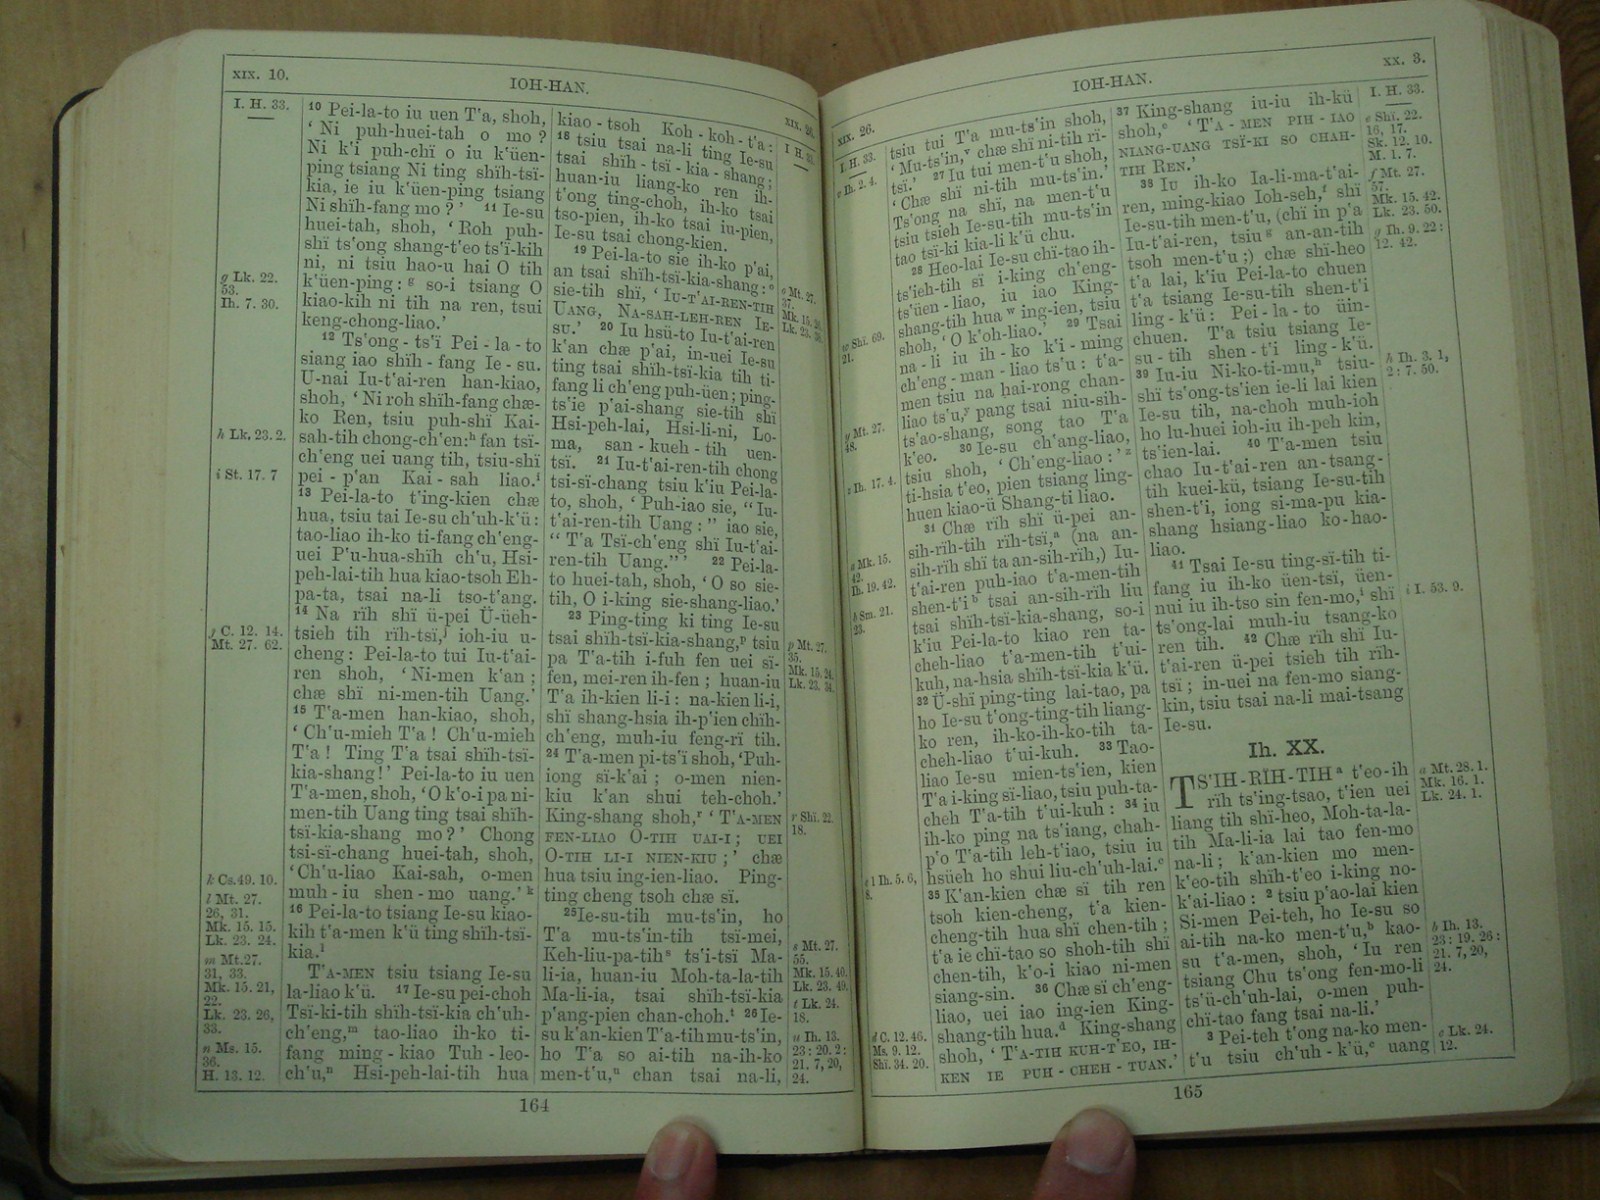 XIX. 10.
IOH-HAN.
XIX. 26.
I. H. 33.
g Lk. 22.
53.
Ih. 7. 30.
h Lk. 23. 2.
i St. 17. 7
j C. 12. 14.
Mt. 27. 62.
k Cs. 49. 10.
l Mt. 27.
26, 31.
Mk. 15. 15.
Lk. 23. 24.
m Mt. 27.
31, 33.
Mk. 15. 21,
22.
Lk. 23. 26,
33.
n Ms. 15.
36.
H. 13. 12.
10 Pei-la-to iu uen T'a, shoh,
‘ Ni puh-huei-tah o mo ?
Ni k'i puh-chï o iu k'üen-
ping tsiang Ni ting shïh-tsï-
kia, ie iu k'üen-ping tsiang
Ni shïh-fang mo ? ’ 11 Ie-su
huei-tah, shoh, ‘ Roh puh-
shï ts'ong shang-t'eo ts'ï-kih
ni, ni tsiu hao-u hai O tih
k'üen-ping : g so-i tsiang O
kiao-kih ni tih na ren, tsui
keng-chong-liao.’
12 Ts'ong - ts'ï Pei - la - to
siang iao shïh - fang Ie - su.
U-nai Iu-t'ai-ren han-kiao,
shoh, ‘ Ni roh shïh-fang chæ-
ko Ren, tsiu puh-shï Kai-
sah-tih chong-ch'en: h fan tsï-
ch'eng uei uang tih, tsiu-shï
pei - p'an Kai - sah liao. i
13 Pei-la-to t'ing-kien chæ
hua, tsiu tai Ie-su ch'uh-k'ü :
tao-liao ih-ko ti-fang ch'eng-
uei P'u-hua-shïh ch'u, Hsi-
peh-lai-tih hua kiao-tsoh Eh-
pa-ta, tsai na-li tso-t'ang.
14 Na rïh shï ü-pei Ü-üeh-
tsieh tih rïh-tsï, j ioh-iu u-
cheng : Pei-la-to tui Iu-t'ai-
ren shoh, ‘ Ni-men k'an ;
chæ shï ni-men-tih Uang.’
15 T'a-men han-kiao, shoh,
‘ Ch'u-mieh T'a ! Ch'u-mieh
T'a ! Ting T'a tsai shïh-tsï-
kia-shang ! ’ Pei-la-to iu uen
T'a-men, shoh, ‘ O k'o-i pa ni-
men-tih Uang ting tsai shïh-
tsï-kia-shang mo ? ’ Chong
tsi-sï-chang huei-tah, shoh,
‘ Ch'u-liao Kai-sah, o-men
muh - iu shen - mo uang.’ k
16 Pei-la-to tsiang Ie-su kiao-
kih t'a-men k'ü ting shïh-tsï-
kia. l
T'A-MEN tsiu tsiang Ie-su
la-liao k'ü. 17 Ie-su pei-choh
Tsï-ki-tih shïh-tsï-kia ch'uh-
ch'eng, m tao-liao ih-ko ti-
fang ming - kiao Tuh - leo-
ch'u, n Hsi-peh-lai-tih hua
kiao - tsoh Koh - koh - t'a :
18 tsiu tsai na-li ting Ie-su
tsai shïh - tsï - kia - shang ;
huan-iu liang-ko ren ih-
t'ong ting-choh, ih-ko tsai
tso-pien, ih-ko tsai iu-pien,
Ie-su tsai chong-kien.
19 Pei-la-to sie ih-ko p'ai,
an tsai shïh-tsï-kia-shang : o
sie-tih shï, ‘ IU-T'AI-REN-TIH
UANG, NA-SAH-LEH-REN IE-
SU.’ 20 Iu hsü-to Iu-t'ai-ren
k'an chæ p'ai, in-uei Ie-su
ting tsai shïh-tsï-kia tih ti-
fang li ch'eng puh-üen ; ping-
ts'ie p'ai-shang sie-tih shï
Hsi-peh-lai, Hsi-li-ni, Lo-
ma, san - kueh - tih uen-
tsï. 21 Iu-t'ai-ren-tih chong
tsi-sï-chang tsiu k'iu Pei-la-
to, shoh, ‘ Puh-iao sie, “ Iu-
t'ai-ren-tih Uang : ” iao sie,
“ T'a Tsï-ch'eng shï Iu-t'ai-
ren-tih Uang.” ’ 22 Pei-la-
to huei-tah, shoh, ‘ O so sie-
tih, O i-king sie-shang-liao.’
23 Ping-ting ki ting Ie-su
tsai shïh-tsï-kia-shang, p tsiu
pa T'a-tih i-fuh fen uei sï-
fen, mei-ren ih-fen ; huan-iu
T'a ih-kien li-i : na-kien li-i,
shï shang-hsia ih-p'ien chïh-
ch'eng, muh-iu feng-rï tih.
24 T'a-men pi-ts'ï shoh, ‘Puh-
iong sï-k'ai ; o-men nien-
kiu k'an shui teh-choh.’
King-shang shoh, r ‘ T'A-MEN
FEN-LIAO O-TIH UAI-I ; UEI
O-TIH LI-I NIEN-KIU ; ’ chæ
hua tsiu ing-ien-liao. Ping-
ting cheng tsoh chæ sï.
25 Ie-su-tih mu-ts'in, ho
T'a mu-ts'in-tih tsï-mei,
Keh-liu-pa-tih s ts'i-tsï Ma-
li-ia, huan-iu Moh-ta-la-tih
Ma-li-ia, tsai shïh-tsï-kia
p'ang-pien chan-choh. t 26 Ie-
su k'an-kien T'a-tih mu-ts'in,
ho T'a so ai-tih na-ih-ko
men-t'u, u chan tsai na-li,
I H. 33.
o Mt. 27.
37.
Mk. 15. 26.
Lk. 23. 38.
p Mt. 27.
35.
Mk. 15. 24.
Lk. 23. 34.
r Shï. 22.
18.
s Mt. 27.
55.
Mk. 15. 40.
Lk. 23. 49.
t Lk. 24.
18.
u Ih. 13.
23 : 20. 2 :
21. 7, 20,
24.
164
XIX. 26.
IOH-HAN.
XX. 3.
I. H. 33.
v Ih. 2. 4.
w Shï. 69.
21.
y Mt. 27.
48.
z Ih. 17. 4.
a Mk. 15.
42.
Ih. 19. 42.
b Sm. 21.
23.
c 1 Ih. 5. 6,
8.
d C. 12. 46.
Ms. 9. 12.
Shï. 34. 20.
tsiu tui T'a mu-ts'in shoh,
‘ Mu-ts'in, v chæ shï ni-tih rï-
tsï.’ 27 Iu tui men-t'u shoh,
‘ Chæ shï ni-tih mu-ts'in.’
Ts'ong na shï, na men-t'u
tsiu tsieh Ie-su-tih mu-ts'in
tao tsï-ki kia-li k'ü chu.
28 Heo-lai Ie-su chï-tao ih-
ts'ieh-tih sï i-king ch'eng-
ts'üen - liao, iu iao King-
shang-tih hua w ing-ien, tsiu
shoh, ‘ O k'oh-liao.’ 29 Tsai
na - li iu ih - ko k'i - ming
ch'eng - man - liao ts'u : t'a-
men tsiu na hai-rong chan-
liao ts'u, y pang tsai niu-sih-
ts'ao-shang, song tao T'a
k'eo. 30 Ie-su ch'ang-liao,
tsiu shoh, ‘ Ch'eng-liao : ’ z
ti-hsia t'eo, pien tsiang ling-
huen kiao-ü Shang-ti liao.
31 Chæ rïh shï ü-pei an-
sih-rïh-tih rïh-tsï, a (na an-
sih-rïh shï ta an-sih-rïh,) Iu-
t'ai-ren puh-iao t'a-men-tih
shen-t'i b tsai an-sih-rïh liu
tsai shïh-tsï-kia-shang, so-i
k'iu Pei-la-to kiao ren ta-
cheh-liao t'a-men-tih t'ui-
kuh, na-hsia shïh-tsï-kia k'ü.
32 Ü-shï ping-ting lai-tao, pa
ho Ie-su t'ong-ting-tih liang-
ko ren, ih-ko-ih-ko-tih ta-
cheh-liao t'ui-kuh. 33 Tao-
liao Ie-su mien-ts'ien, kien
T'a i-king sï-liao, tsiu puh-ta-
cheh T'a-tih t'ui-kuh : 34 iu
ih-ko ping na ts'iang, chah-
p'o T'a-tih leh-t'iao, tsiu iu
hsüeh ho shui liu-ch'uh-lai. c
35 K'an-kien chæ sï tih ren
tsoh kien-cheng, t'a kien-
cheng-tih hua shï chen-tih ;
t'a ie chï-tao so shoh-tih shï
chen-tih, k'o-i kiao ni-men
siang-sin. 36 Chæ sï ch'eng-
liao, uei iao ing-ien King-
shang-tih hua. d King-shang
shoh, ‘ T'A-TIH KUH-T'EO, IH-
KEN IE PUH - CHEH - TUAN.’
37 King-shang iu-iu ih-kü
shoh, e ‘ T'A - MEN PIH - IAO
NIANG-UANG TSÏ-KI SO CHAH-
TIH REN.’
38 Iu ih-ko Ia-li-ma-t'ai-
ren, ming-kiao Ioh-seh, f shï
Ie-su-tih men-t'u, (chï in p'a
Iu-t'ai-ren, tsiu g an-an-tih
tsoh men-t'u ;) chæ shï-heo
t'a lai, k'iu Pei-la-to chuen
t'a tsiang Ie-su-tih shen-t'i
ling - k'ü : Pei - la - to üin-
chuen. T'a tsiu tsiang Ie-
su - tih shen - t'i ling - k'ü.
39 Iu-iu Ni-ko-ti-mu, h tsiu-
shï ts'ong-ts'ien ie-li lai kien
Ie-su tih, na-choh muh-ioh
ho lu-huei ioh-iu ih-peh kin,
ts'ien-lai. 40 T'a-men tsiu
chao Iu-t'ai-ren an-tsang-
tih kuei-kü, tsiang Ie-su-tih
shen-t'i, iong si-ma-pu kia-
shang hsiang-liao ko-hao-
liao.
41 Tsai Ie-su ting-sï-tih ti-
fang iu ih-ko üen-tsï, üen-
nui iu ih-tso sin fen-mo, i shï
ts'ong-lai muh-iu tsang-ko
ren tih. 42 Chæ rïh shï Iu-
t'ai-ren ü-pei tsieh tih rïh-
tsï ; in-uei na fen-mo siang-
kin, tsiu tsai na-li mai-tsang
Ie-su.
Ih. XX.
TS'IH-RÏH-TIH a t'eo-ih
rïh ts'ing-tsao, t'ien uei
liang tih shï-heo, Moh-ta-la-
tih Ma-li-ia lai tao fen-mo
na-li ; k'an-kien mo men-
k'eo-tih shïh-t'eo i-king no-
k'ai-liao : 2 tsiu p'ao-lai kien
Si-men Pei-teh, ho Ie-su so
ai-tih na-ko men-t'u, b kao-
su t'a-men, shoh, ‘ Iu ren
tsiang Chu ts'ong fen-mo-li
ts'ü-ch'uh-lai, o-men puh-
chï-tao fang tsai na-li.’
3 Pei-teh t'ong na-ko men-
t'u tsiu ch'uh - k'ü, c uang
I. H. 33.
e Shï. 22.
16, 17.
Sk. 12. 10.
M. 1. 7.
f Mt. 27.
57.
Mk. 15. 42.
Lk. 23. 50.
g Ih. 9. 22 :
12. 42.
h Ih. 3. 1,
2 : 7. 50.
i I. 53. 9.
a Mt. 28. 1.
Mk. 16. 1.
Lk. 24. 1.
b Ih. 13.
23 : 19. 26 :
21. 7, 20,
24.
c Lk. 24.
12.
165